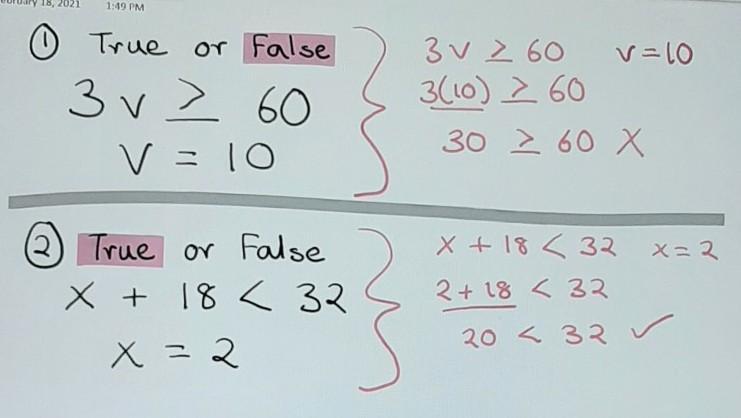 February 18, 2021 1:49 PM
① True or False
3v ≥ 60
v = 10
3v ≥ 60 v=10
3(10) ≥ 60
30 ≥ 60 X
② True or False
x + 18 < 32
x = 2
x + 18 < 32 x=2
2+18 < 32
20 < 32 ✓